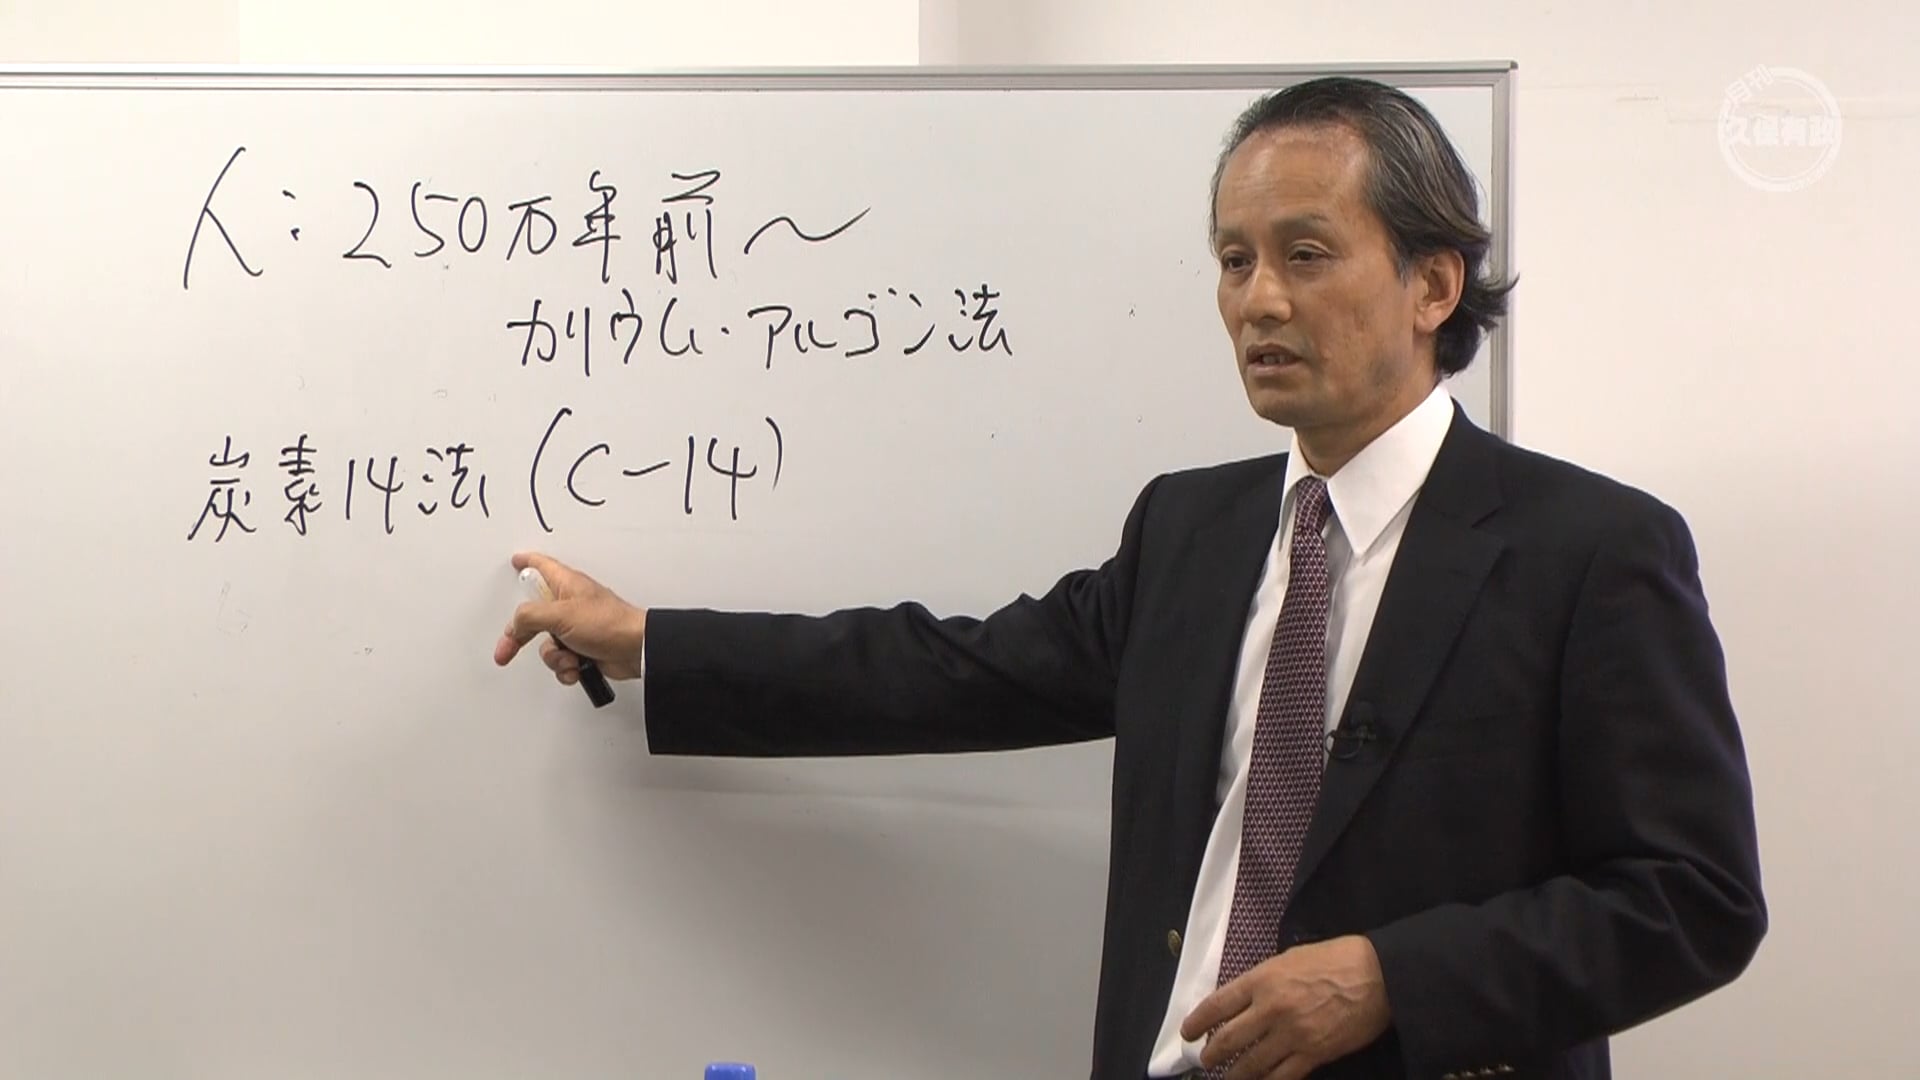 人：250万年前〜
カリウム・アルゴン法
炭素14法（C-14）
月刊
久保有政